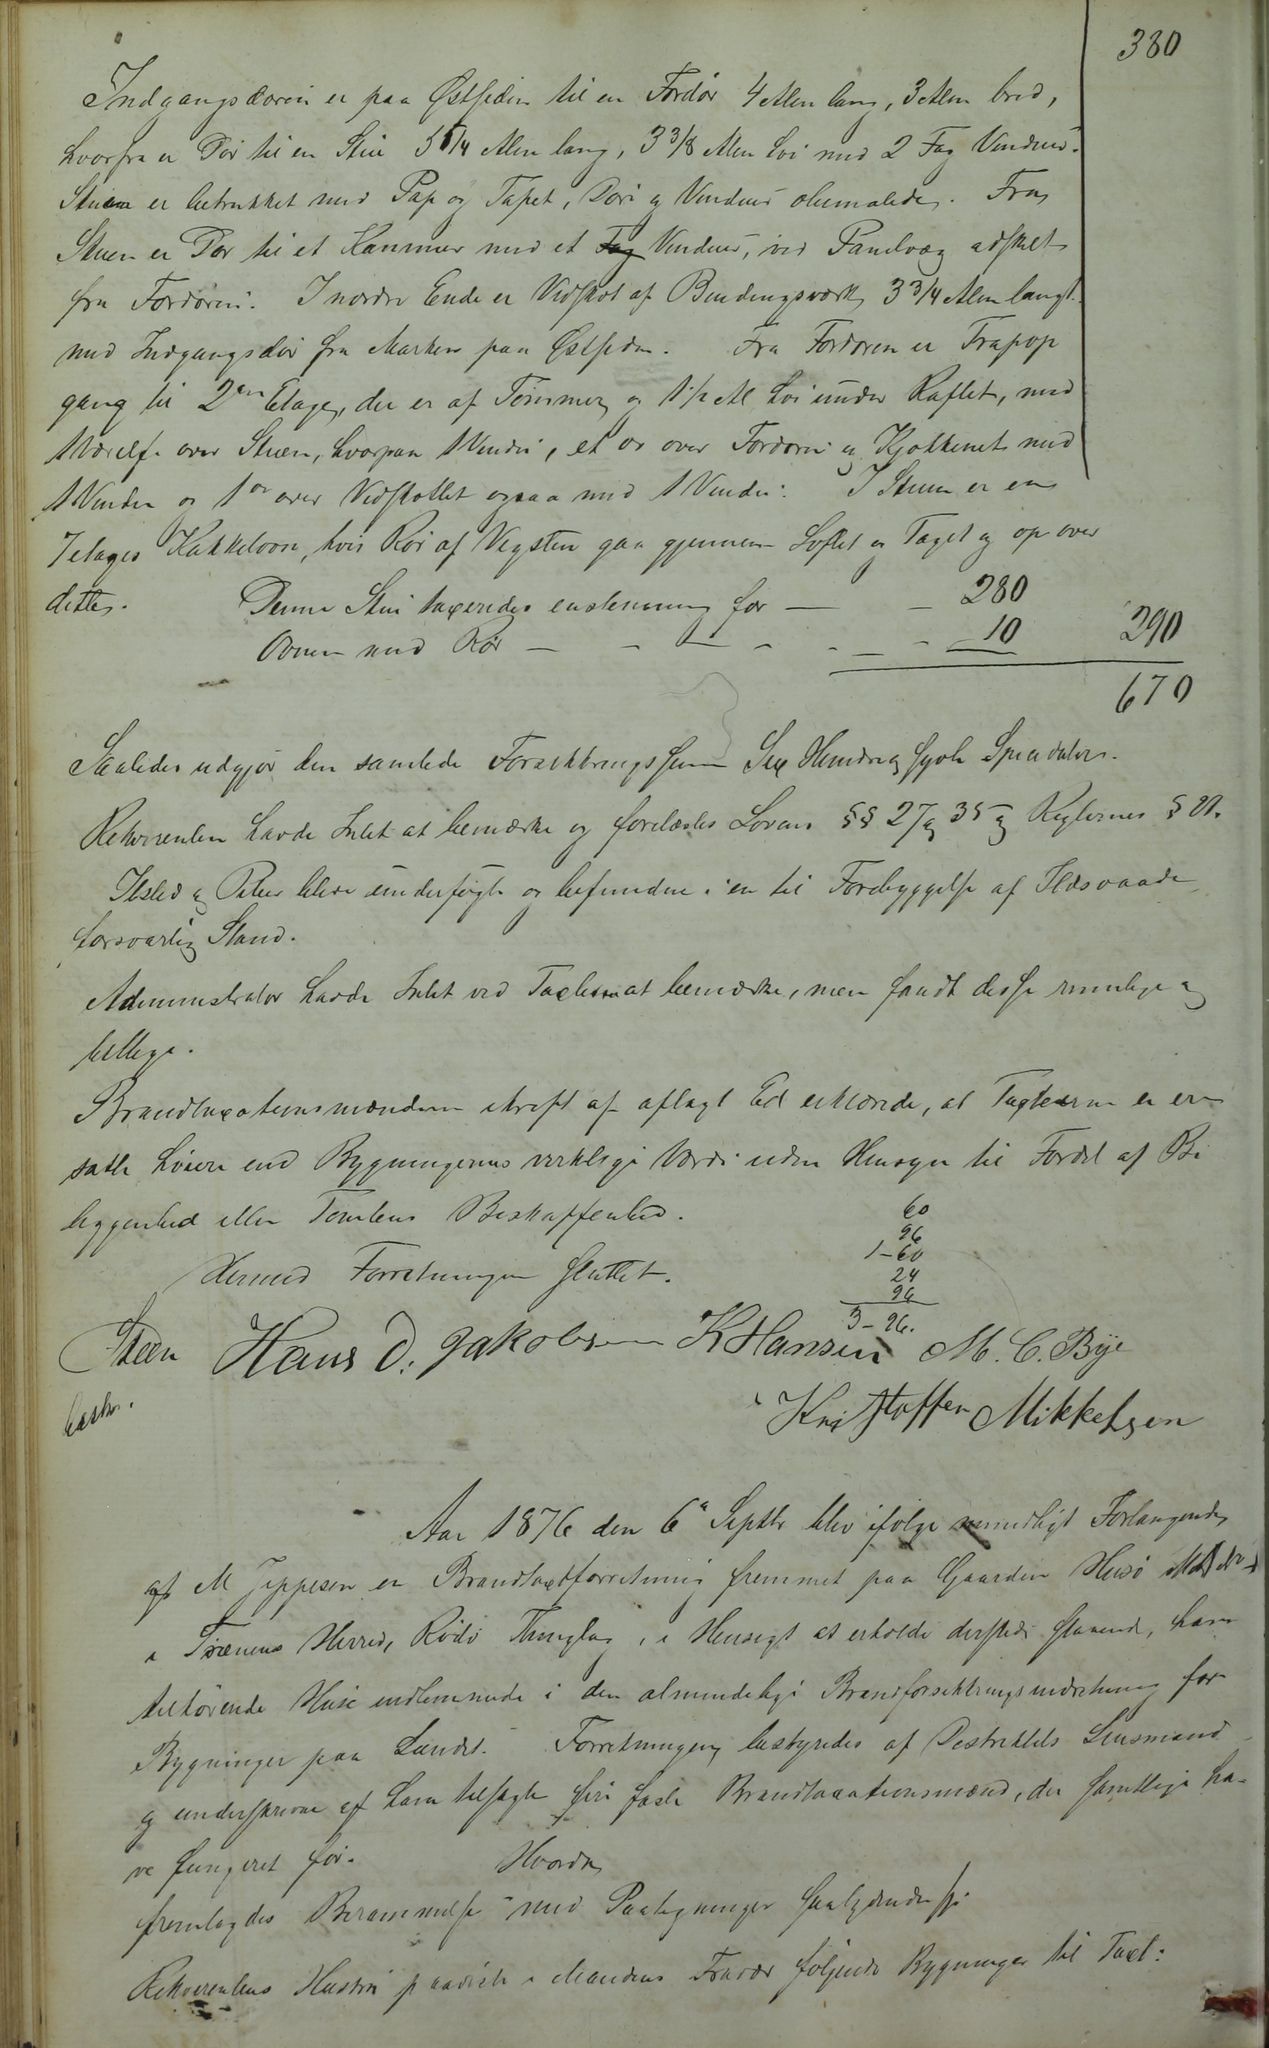 380
Indgangsdøren er paa Østsiden til en Fordør 4 Alen lang, 3 Alen bred,
hvorfra er Dør til en Stue 5 1/4 Alen lang, 3 3/8 Alen høi med 2 Fag Vinduer.
Stuen er betrukket med Pap og Tapet, Døre og Vinduer oliemalede. Fra
Stuen er Dør til et Kammer med et Fag Vinduer, ved Panelvæg adskilt
fra Fordøren. I nordre Ende er Vedskot af Bindingsværk 3 3/4 Alen langt
med Indgangsdør fra Marken paa Østsiden. Fra Fordøren er Trapop
gang til 2den Etage, der er af Tømmer og 1 1/2 Al høi under Raftet, med
1 Værelse over Stuen, hvorpaa 1 Vindu, et do over Fordøren og Kjøkkenet med
1 Vindu og 1 do over Vedskottet ogsaa med 1 Vindu. I Stuen er en
2 etages Kakkelovn, hvis Rør af Vegsten gaa gjennem Loftet og Taget og op over
dette. Denne Stue taxeredes enstemmig for — — 280
Ovnen med Rør — - - - - - 10 290
670
Saaledes udgjør den samlede Forsikkringssum Sex Hundre og Sytti Speciedaler.
Rekvirenten havde Intet at bemærke og forelæstes Lovens §§ 27 og 35 og Reglernes § 21.
Ildsted og Piber bleve undersøgte og befundne i en til Forebyggelse af Ildsvaade
forsvarlig Stand.
Administrator havde Intet ved Taxterne at bemærke, men fandt disse rimelige og
billige.
Brandtaxationsmændene i kraft af aflagt Ed erklærede, at Taxterne er ei
satte høiere end Bygningernes virkelige Værdi uden Hensyn til Fordel af Be
liggenhed eller Tomtens Beskaffenhed.
60
96
1-60
24
96
3-96.
Hermed Forretningen sluttet.
Steen Hans D. Jakobsen K Hansen M. C. Bye
Kristoffer Mikkelsen
Aar 1876 den 6te Septbr blev ifølge mundtligt Forlangende
af M Jeppesen en Brandtaxtforretning fremmet paa Gaarden Husø
i Trænens Herred, Rødø Thinglag, i Hensigt at erholde dersteds staaende, ham
tilhørende Huse indlemmede i den almindelige Brandforsikkringsindretning for
Bygninger paa Landet. Forretningen bestyredes af Distriktets Lensmand
og underskrevne af ham tilsagte fire faste Brandtaxationsmænd, der samtlige ha-
ve fungeret før. Hvorda
fremlagdes Berammelse med Paategninger saalydende
Rekvirentens Hustru paaviste i Mandens Fravær følgende Bygninger til Taxt: